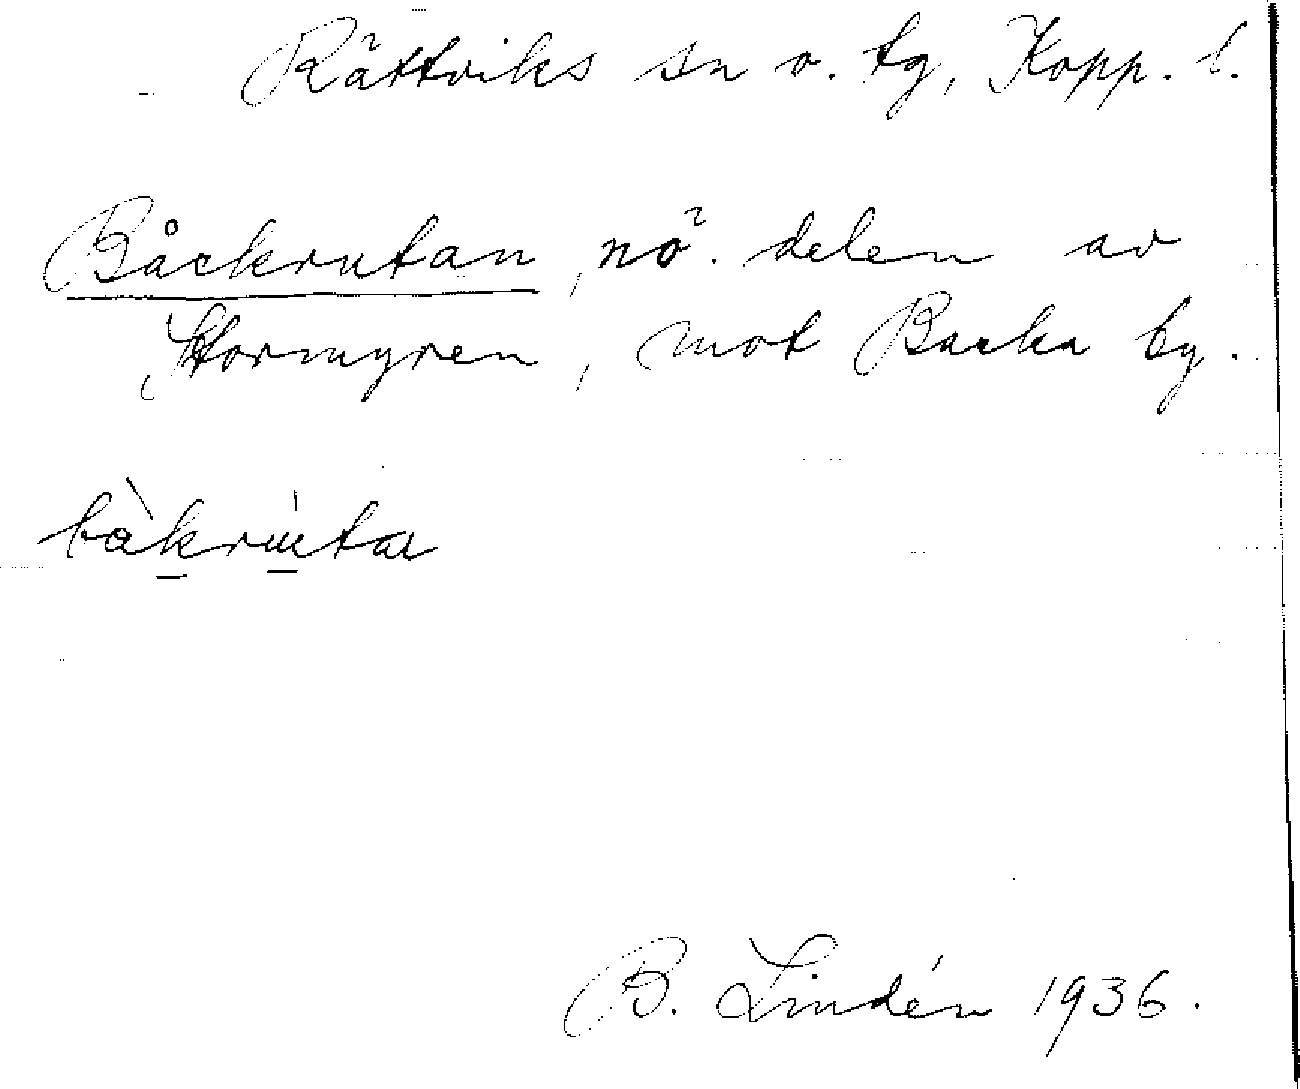 Rättviks sn o. tg, Kopp. l.
Båckrutan, nö. delen av
Stormyren, mot Backa by.
bàkrùta
B. Lindén 1936.